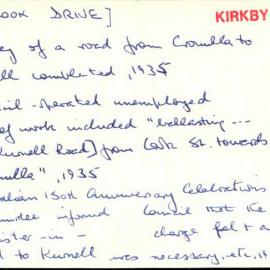 OOK DRIVE]
KIRKBY
ey of a road from Cronulla to
ell completed, 1935
cil-operated unemployed
ef work included "ballasting ---
Kurnell Road] from Cook St. towards
nulla", 1935
ralian 150th Anniversary Celebrations
mittee informed Council that the
ister-in- charge felt a
d to Kurnell was necessary, etc, 19